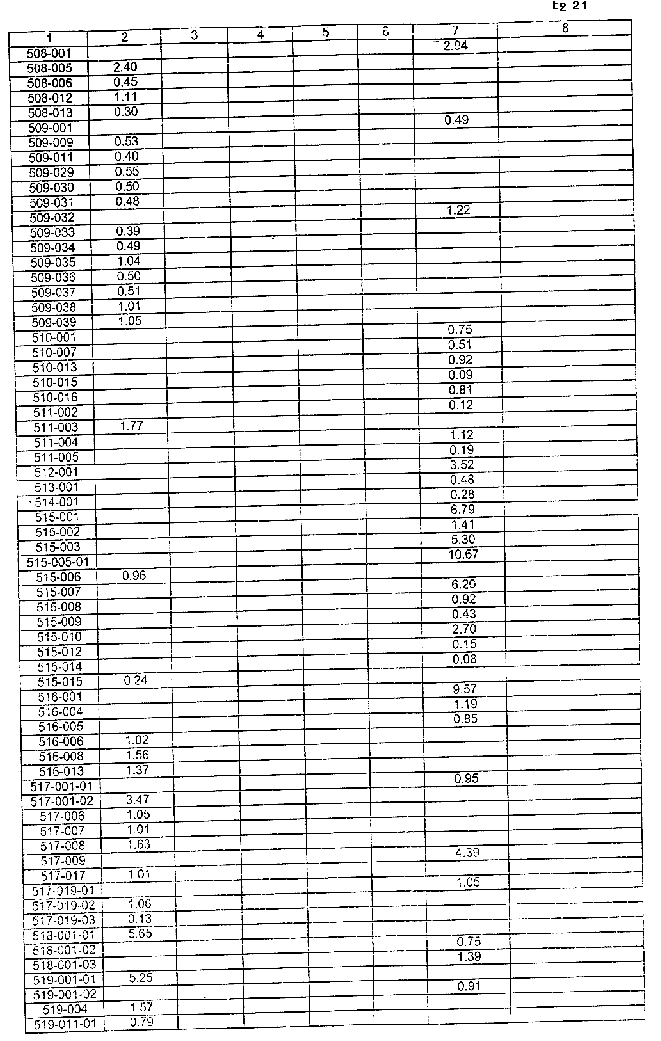 Eg 21
1 2 3 4 5 6 7 8
508-001 2.94
508-005 2.40
508-006 0.45
508-012 1.11
508-013 0.30
509-001 0.49
509-009 0.53
509-011 0.40
509-029 0.55
509-030 0.50
509-031 0.48
509-032 1.22
509-033 0.39
509-034 0.49
509-035 1.04
509-036 0.50
509-037 0.51
509-038 1.01
509-039 1.05
510-001 0.75
510-007 0.51
510-013 0.92
510-015 0.09
510-016 0.81
511-002 0.12
511-003 1.77
511-004 1.12
511-005 0.19
512-001 3.52
513-001 0.48
514-001 0.28
515-001 6.79
515-002 1.41
515-003 5.30
515-005-01 10.67
515-006 0.96
515-007 6.20
515-008 0.92
515-009 0.43
515-010 2.70
515-012 0.15
515-014 0.08
515-015 0.24
516-001 9.57
516-004 1.19
516-005 0.85
516-006 1.02
516-008 1.56
516-013 1.37
517-001-01 0.95
517-001-02 3.47
517-006 1.05
517-007 1.01
517-008 1.63
517-009 4.39
517-017 1.01
517-019-01 1.05
517-019-02 1.06
517-019-03 0.13
518-001-01 5.65
518-001-02 0.75
518-001-03 1.39
519-001-01 5.25
519-001-02 0.91
519-004 1.57
519-011-01 0.79